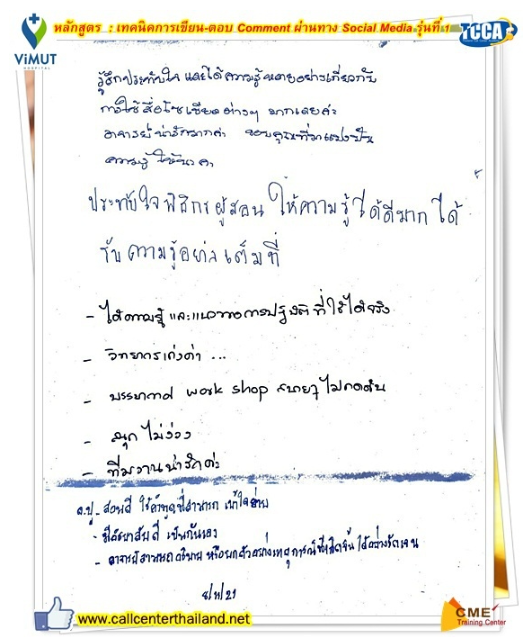 หลักสูตร : เทคนิคการเขียน-ตอบ Comment ผ่านทาง Social Media รุ่นที่1
TCCA
ViMUT
HOSPITAL
รู้สึกประทับใจ และได้ความรู้หลายอย่างเกี่ยวกับ
การใช้สื่อโซเชียลต่างๆ มากเลยค่ะ
อาจารย์น่ารักมากค่ะ ขอบคุณที่มาแบ่งปัน
ความรู้ให้นะคะ
ประทับใจพิธีกรผู้สอน ให้ความรู้ได้ดีมาก ได้
รับความรู้อย่างเต็มที่
- ได้ความรู้ และแนวทางการปฏิบัติที่ใช้ได้จริง
- วิทยากรเก่งค่ะ ...
- บรรยากาศ work shop สบายๆ ไม่กดดัน
- สนุก ไม่ง่วง
- ทีมงานน่ารักค่ะ
อ.ปู - สอนดี ใช้คำพูดที่สามารถ เข้าใจง่าย
- มีอัธยาศัยดี เป็นกันเอง
- อาจารย์สามารถอธิบาย หรือยกตัวอย่างเหตุการณ์ที่เกิดขึ้น ได้อย่างชัดเจน
www.callcenterthailand.net
CME
Training Center